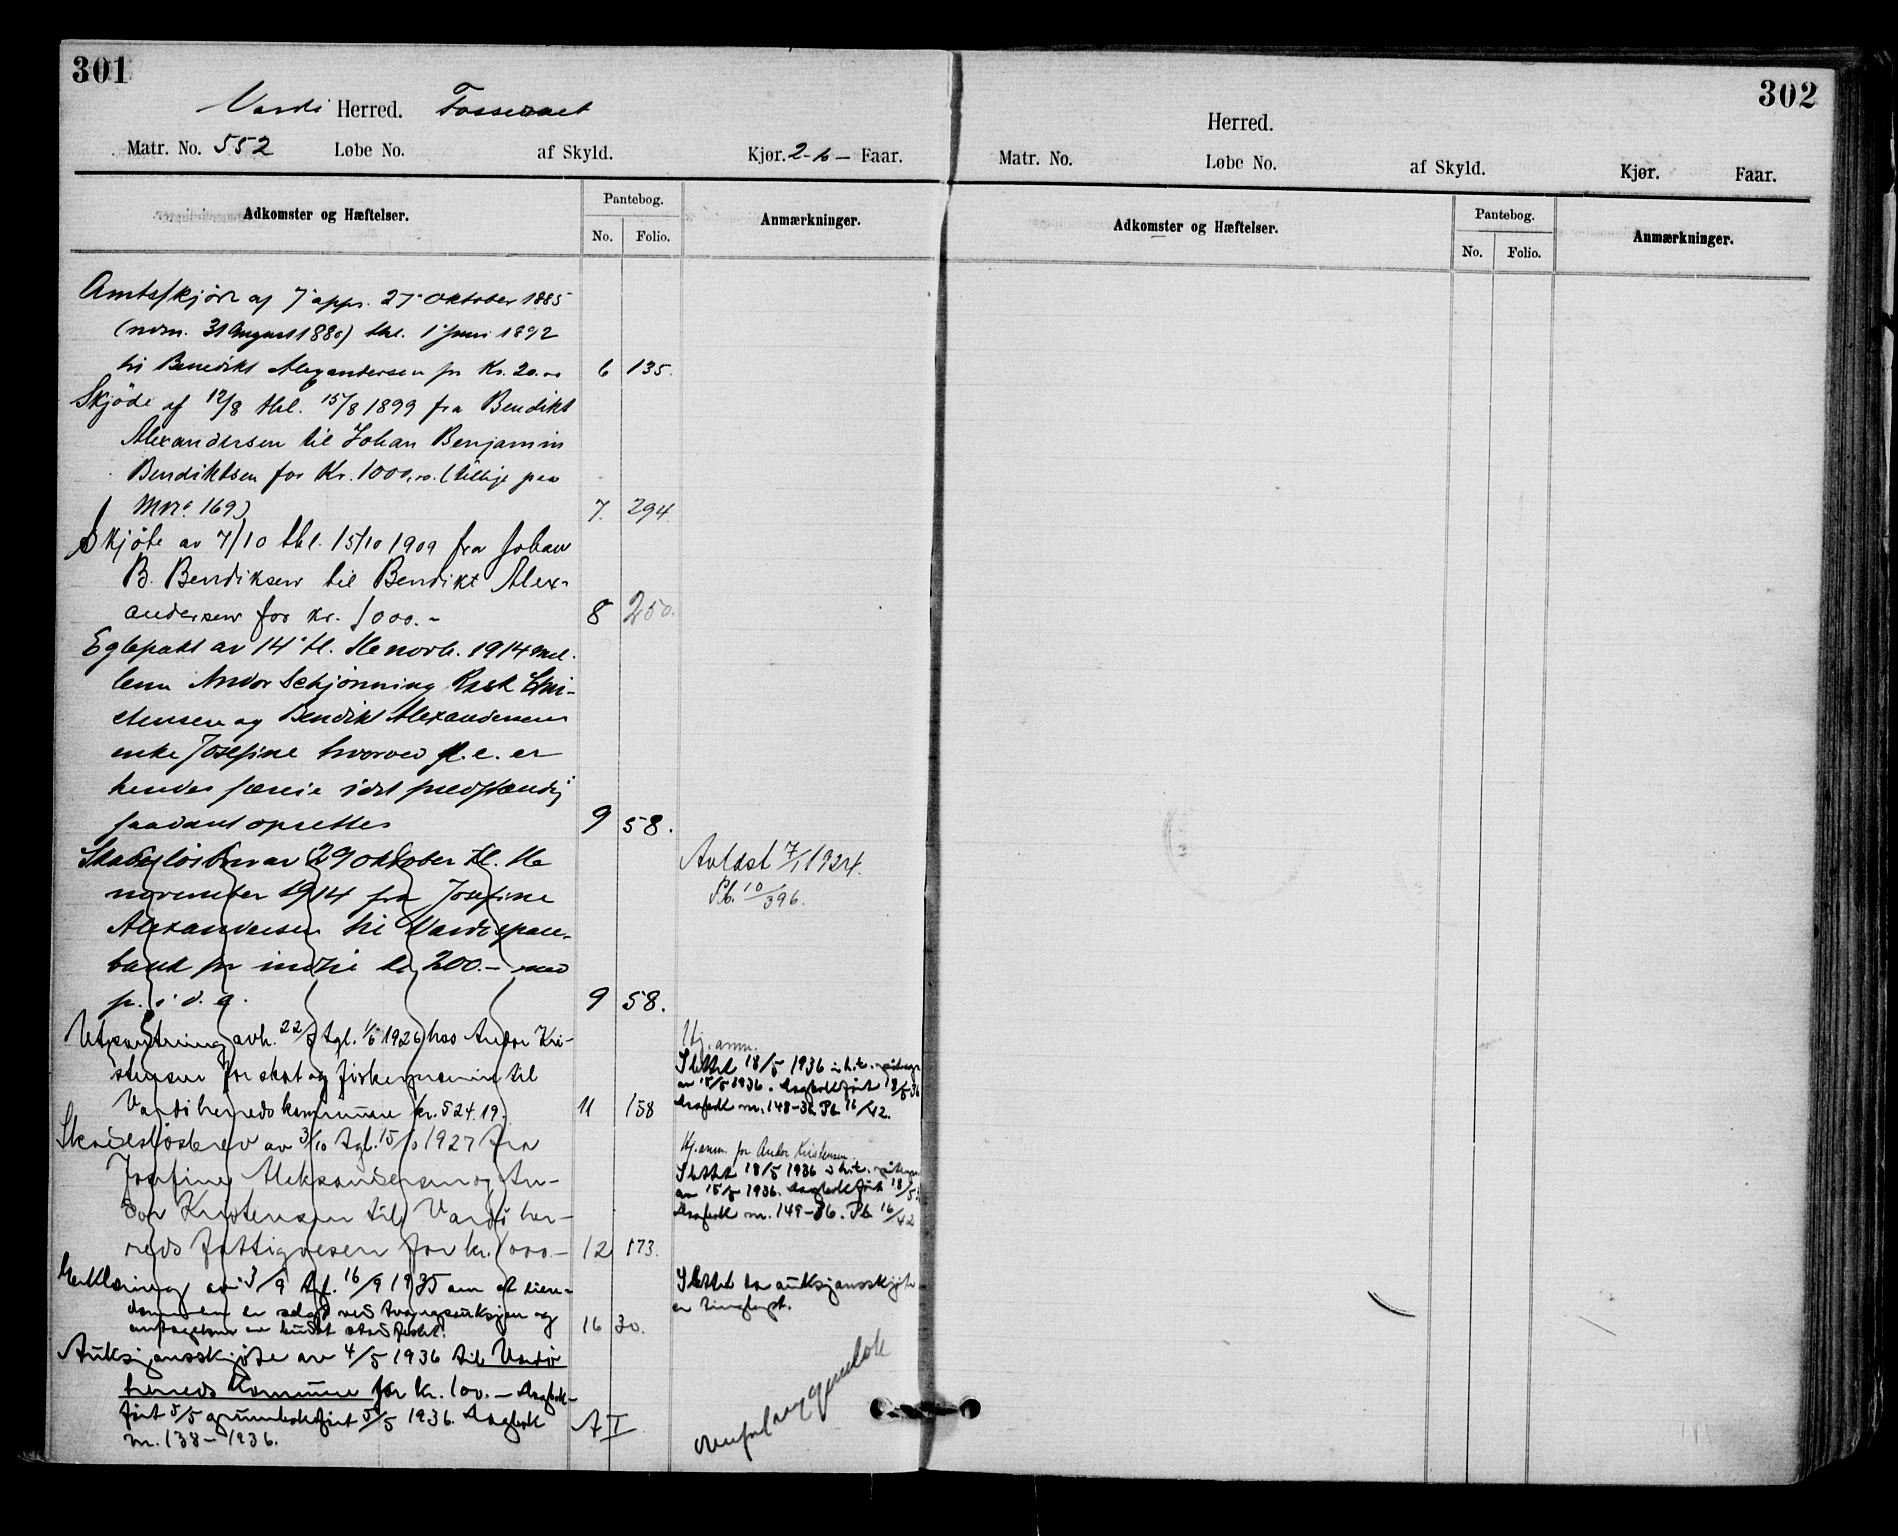 301
Vardö Herred. Fossevaet
Matr. No. 552 Løbe No. af Skyld. Kjør. 2-6- Faar.
Adkomster og Hæftelser.
Pantebog.
No. Folio.
Anmærkninger.
Amtsskjöte af 7' appr. 27' Oktober 1885
(udm. 31 August 1880) thl. 1' Juni 1892
til Benedikt Alexandersen for Kr. 20.00 6 135.
Skjöde af 12/8 thl. 15/8 1899 fra Bendikt
Alexandersen til Johan Benjamin
Bendiktsen for Kr. 1000,00. (tillige paa
Mno. 169) 7. 294.
Skjöte av 7/10 thl. 15/10 1909 fra Johan
B. Bendiksen til Bendikt Alex-
andersen for kr. 1000.- 8 250.
Egtepakt av 14' tl. 16 novb. 1914 mel-
lem Andor Schjønning Rask Kri-
stensen og Bendikt Alexandersens
enke Josefine hvorved f. e. er
hendes særeie
saadant oprettes 9 58.
Skadesløsbrev av 29 oktober tl. 16
november 1914 fra Josefine
Alexandersen til Vardö spare-
bank for indtil kr 200.- med
p. i d. g. 9 58.
Avlæst 7/1 1924.
Pb. 10/396.
Utpantning avh. 22/ tgl. 1/6 1926 hos Andor Kri-
stensen for skat og fiskermanin til
Vardö herredskommune kr. 524.19. 11 158
Hj. anm.
Slettet 18/5 1936 i h.t.
av 15/5 1936. Dagbokført 18/5 36
Dagbok nr. 148-36 Pb. 16/42.
Skadesløsbrev av 3/10 tgl. 15/10 1927 fra
Josefine Aleksandersen og An-
dor Kristensen til Vardö her-
reds fattigvesen for kr. 1000.- 12 173.
Hj. anm. for Andor Kristensen
Slettet 18/5 1936 i h.t.
av 15/5 1936. Dagbokført 18/5
Dagbok nr. 149-36. Pb 16/42
Erklæring av 3/9 tgl. 16/9 1935 om at eien-
dommen er solgt ved tvangsauksjon og
antagelsen av budet stadfestet. 16 30.
Slettet da auksjonsskjøte
er tinglyst.
Auksjonsskjøte av 4/5 1936 til Vardø
herreds kommune for kr. 100.- Dagbok-
ført 5/5 grunnbokført 5/5 1936. Dagbok
nr. 138-1936. A I
302
Herred.
Matr. No. Løbe No. af Skyld. Kjør. Faar.
Adkomster og Hæftelser.
Pantebog.
No. Folio.
Anmærkninger.